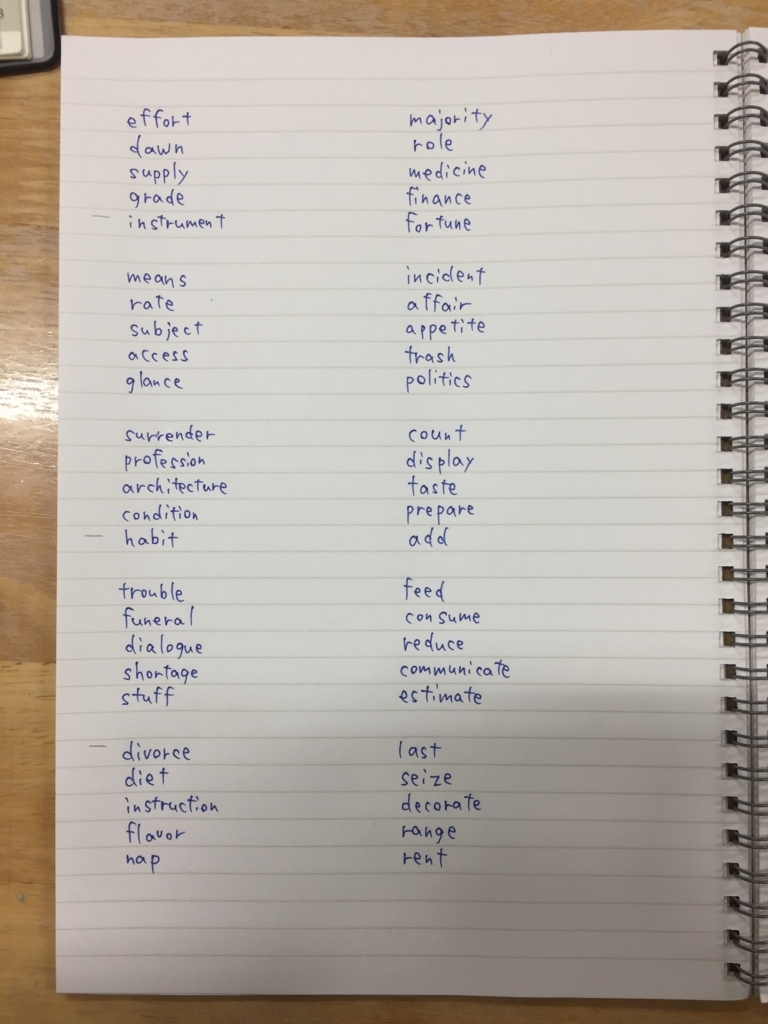 effort
dawn
supply
grade
instrument
means
rate
subject
access
glance
surrender
profession
architecture
condition
habit
trouble
funeral
dialogue
shortage
stuff
divorce
diet
instruction
flavor
nap
majority
role
medicine
finance
fortune
incident
affair
appetite
trash
politics
count
display
taste
prepare
add
feed
consume
reduce
communicate
estimate
last
seize
decorate
range
rent